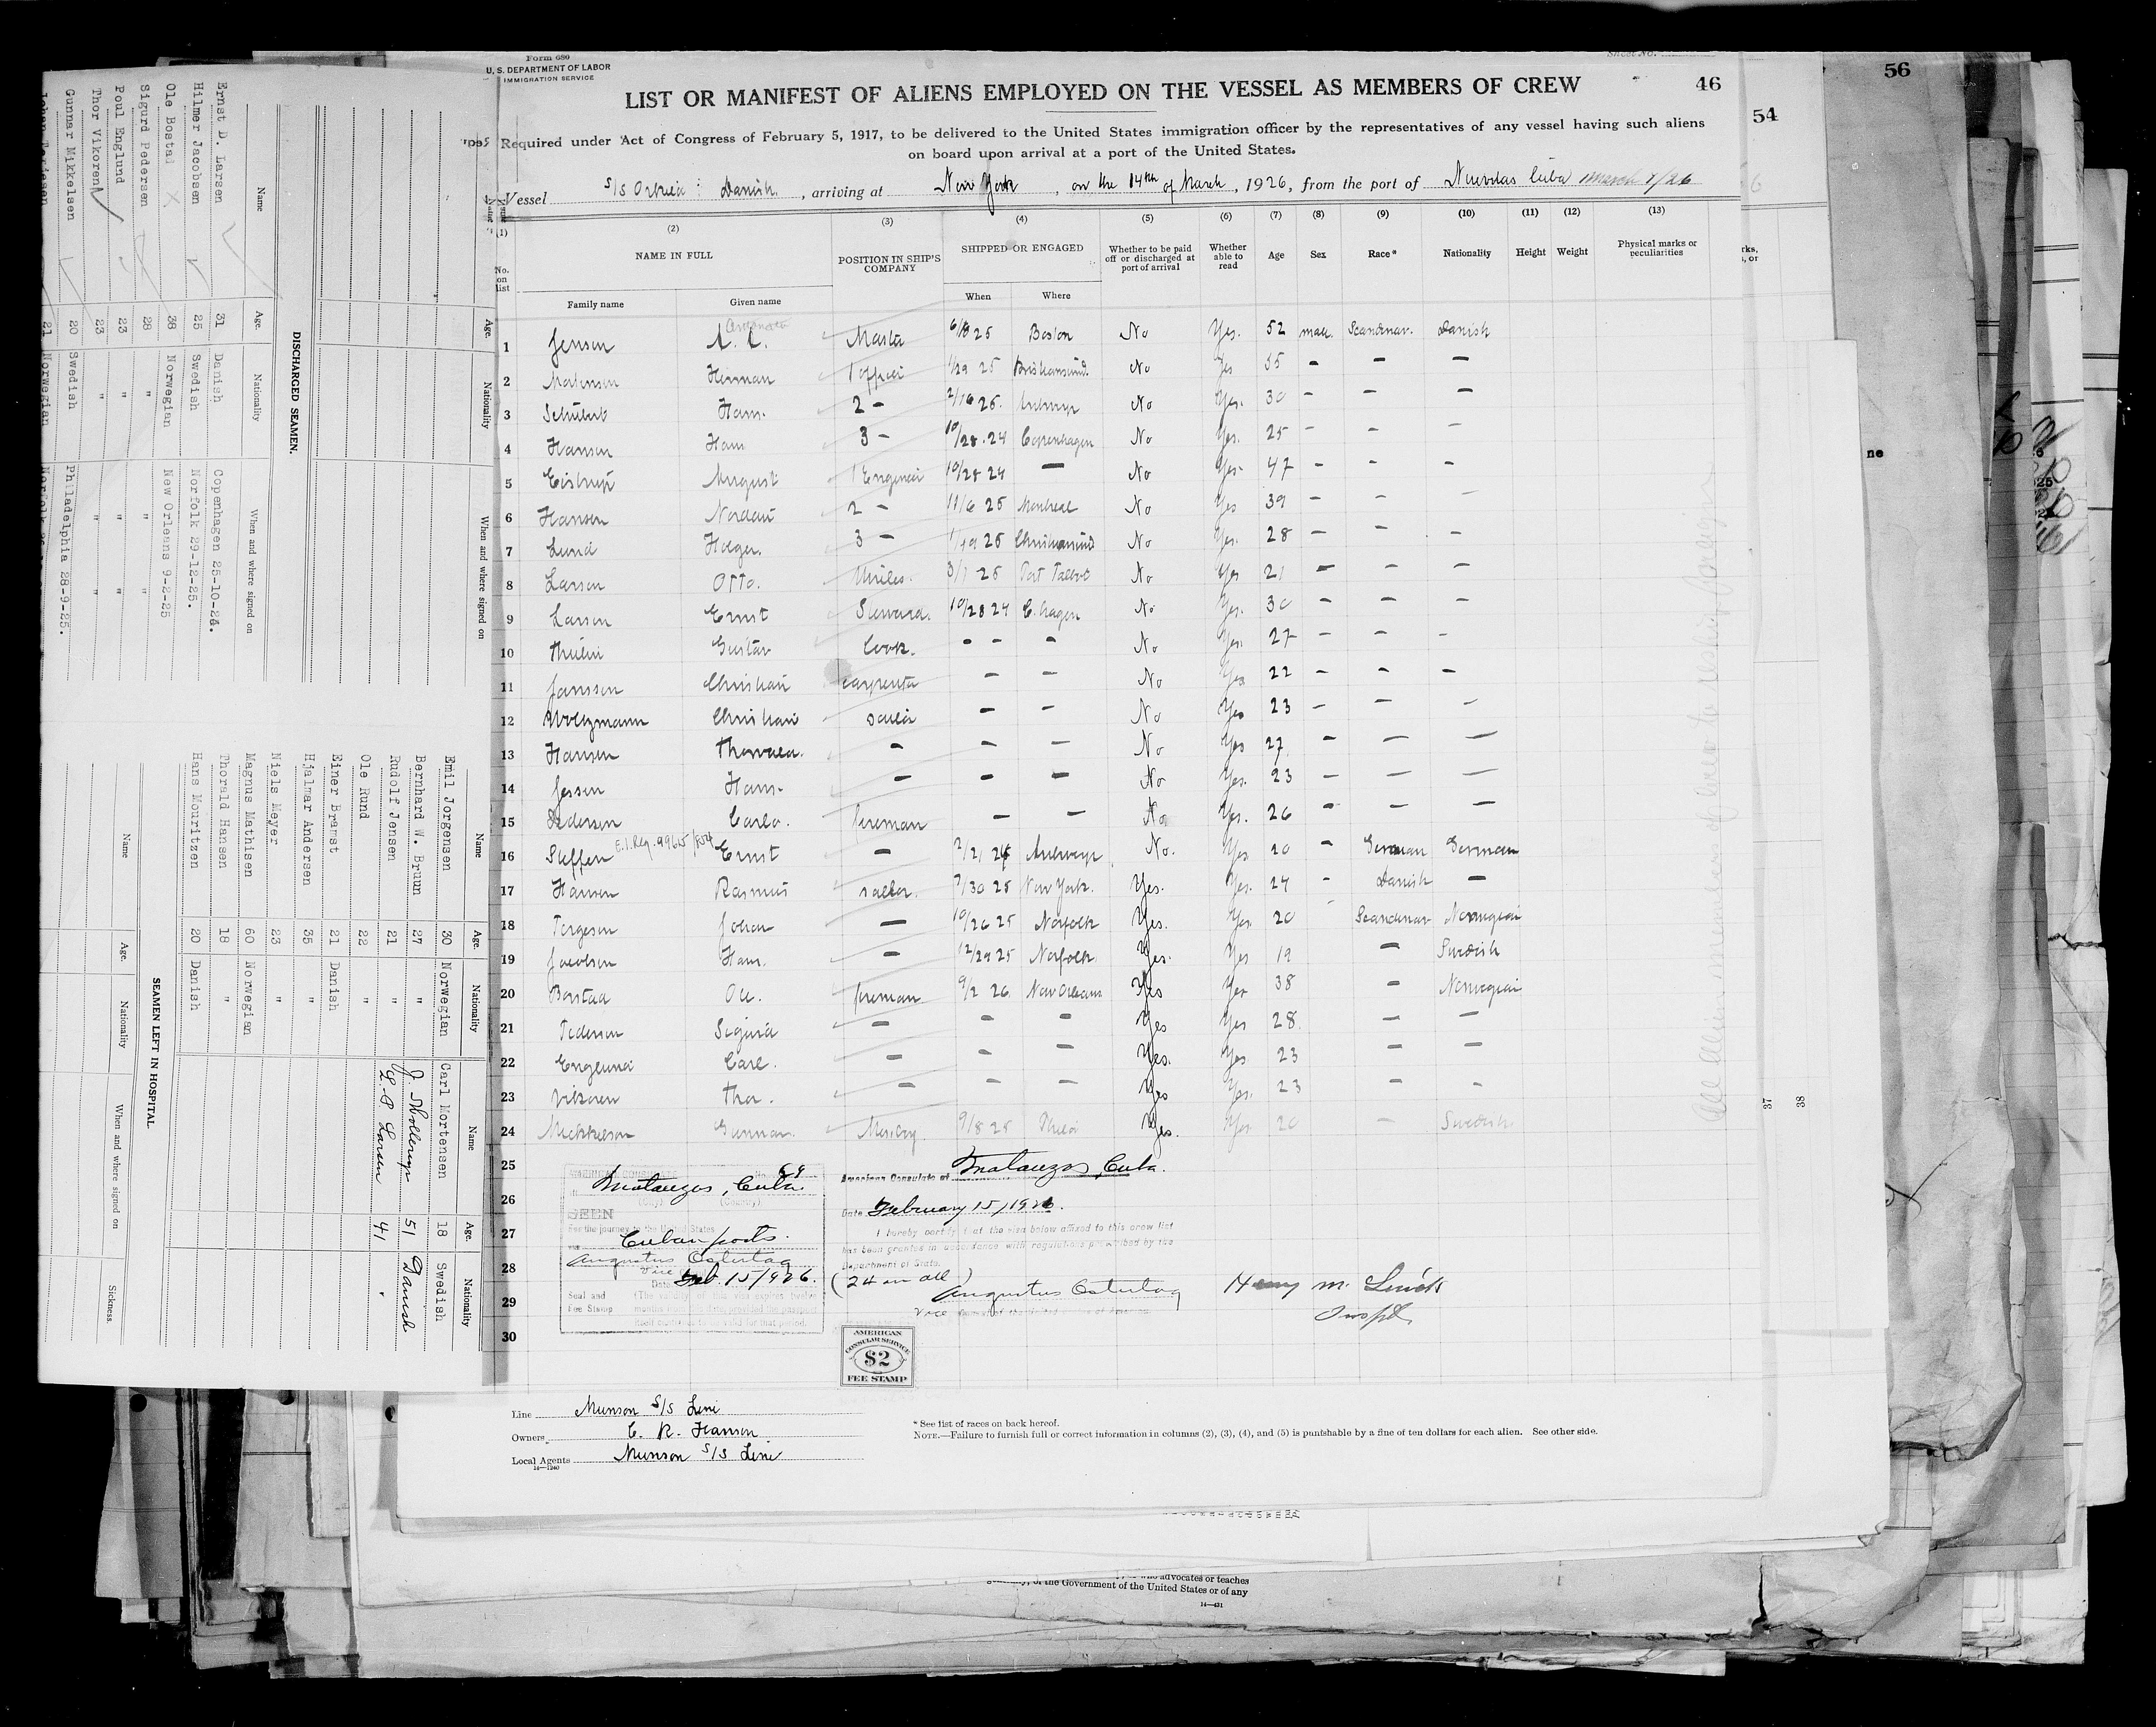 Form 680
U. S. DEPARTMENT OF LABOR
IMMIGRATION SERVICE
LIST OR MANIFEST OF ALIENS EMPLOYED ON THE VESSEL AS MEMBERS OF CREW
46
54
56
Required under Act of Congress of February 5, 1917, to be delivered to the United States immigration officer by the representatives of any vessel having such aliens
on board upon arrival at a port of the United States.
Vessel S/S Danish, arriving at New York, on the 14th of March, 1926, from the port of Nuevitas Cuba March 7/26
(1) (2) (3) (4) (5) (6) (7) (8) (9) (10) (11) (12) (13)
No. on list NAME IN FULL POSITION IN SHIP'S COMPANY SHIPPED OR ENGAGED Whether to be paid off or discharged at port of arrival Whether able to read Age Sex Race* Nationality Height Weight Physical marks or peculiarities
Family name Given name When Where
1 Jensen Master 6/8 25 Boston No Yes. 52 male Scandinav. Danish
2 Mortensen Herman 1 officer 1/29 25 No Yes 35 – – –
3 Schubert Hans. 2 – No Yes. 30 – – –
4 Hansen Hans 3 – 10/28.24 Copenhagen No Yes. 25 – – –
5 August 1 Engineer 10/28 24 – No Yes 47 – – –
6 Hansen 2 – 11/6 25 Montreal No Yes 39 – – –
7 Lund Holger. 3 – 1/19 25 No Yes. 28 – – –
8 Larsen Otto. 3/1 25 Port Talbot No Yes 21 – – –
9 Larsen Ernst Steward. 10/28 24 C.hagen No Yes. 30 – – –
10 Thulin Gustav Cook. – – – No Yes. 27 – – –
11 Janssen Christian carpenter – – No Yes 22 – – –
12 Woltzmann Christian sailor – – No Yes 23 – – –
13 Hansen Thorvald. – – – No Yes 27 – – –
14 Jessen Hans – – – – No Yes. 23 – – –
15 Pedersen Carlo. fireman – – No Yes. 26 – – –
16 Steffen E.I.Reg. 99615/854 Ernst – Antwerp No. Yes 20 – German German
17 Hansen Rasmus sailor. 7/30 25 New York. Yes. Yes. 24 – Danish –
18 Torgesen Johan – 10/26 25 Norfolk Yes. Yes 20 Scandinav Norwegian
19 Jacobsen Hans. – 12/29 25 Norfolk. Yes. Yes 19 – Swedish
20 Borstad Ole. fireman 9/2 26 New Orleans Yes Yes 38 – Norwegian
21 Pedersen Sigurd – – – Yes Yes 28 – –
22 Englund Carl. – – – Yes. Yes. 23 – –
23 Vikoren Thor. – – – Yes Yes. 23 – –
24 Mickkelson Gunnar. Messboy 9/8 25 Phila Yes. Yes 20 – Swedish
25
26
27
28
29
30
AMERICAN CONSULATE No. 69
Matanzas, Cuba
(City) (Country)
SEEN
For the journey to the United States
via Cuban ports.
Augustus Ostertag
Vice
Date Feb. 15/1926.
Seal and Fee Stamp
(The validity of this visa expires twelve
months from this date, provided the passport
itself continues to be valid for that period.
American Consulate at Matanzas, Cuba.
Date February 15/1926.
I hereby certify that the visa below affixed to this crew list
has been granted in accordance with regulations prescribed by the
Department of State.
(24 in all)
Augustus Ostertag
Vice Consul of the United States of America.
Inspt.
AMERICAN
CONSULAR SERVICE
$2
FEE STAMP
Line Munson S/S Line
Owners C. K. Hansen
Local Agents Munson S/S Line
14—1240
* See list of races on back hereof.
NOTE.—Failure to furnish full or correct information in columns (2), (3), (4), and (5) is punishable by a fine of ten dollars for each alien. See other side.
All alien members of crew to
37
38
who advocates or teaches
of the Government of the United States or of any
14—431
DISCHARGED SEAMEN.
Name Age. Nationality When and where signed on
Ernst D. Larsen 31 Danish Copenhagen 25-10-24.
Hilmer Jacobsen 25 Swedish Norfolk 29-12-25.
Ole Bostal 38 Norwegian New Orleans 9-2-25
Sigurd Pedersen 28 " "
Poul Englund 23 " " "
Thor Vikoren 23 " " "
Gunnar Mikkelsen 20 Swedish Philadelphia 28-9-25.
21 Norwegian Norfolk
Name Age. Nationality Name Age. Nationality
Emil Jorgensen 30 Norwegian Carl Mortensen 18 Swedish
Bernhard W. Bruun 27 " J. 51 Danish
Rudolf Jensen 21 " L. P. Larsen 41 "
Ole Rund 22 "
Einer Brawst 21 Danish
Hjalmar Andersen 35 "
Niels Meyer 23 "
Magnus Mathisen 60 Norwegian
Thorald Hansen 18 "
Hans Mouritzen 20 Danish
SEAMEN LEFT IN HOSPITAL
Name Age. Nationality When and where signed on Sickness.